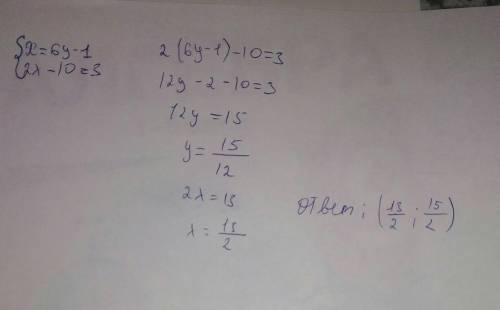 {x=6y-1
2x-10=3
2(6y-1)-10=3
12y-2-10=3
12y=15
y=15/12
2x=13
x=13/2
Ответ; (13/2; 15/2)